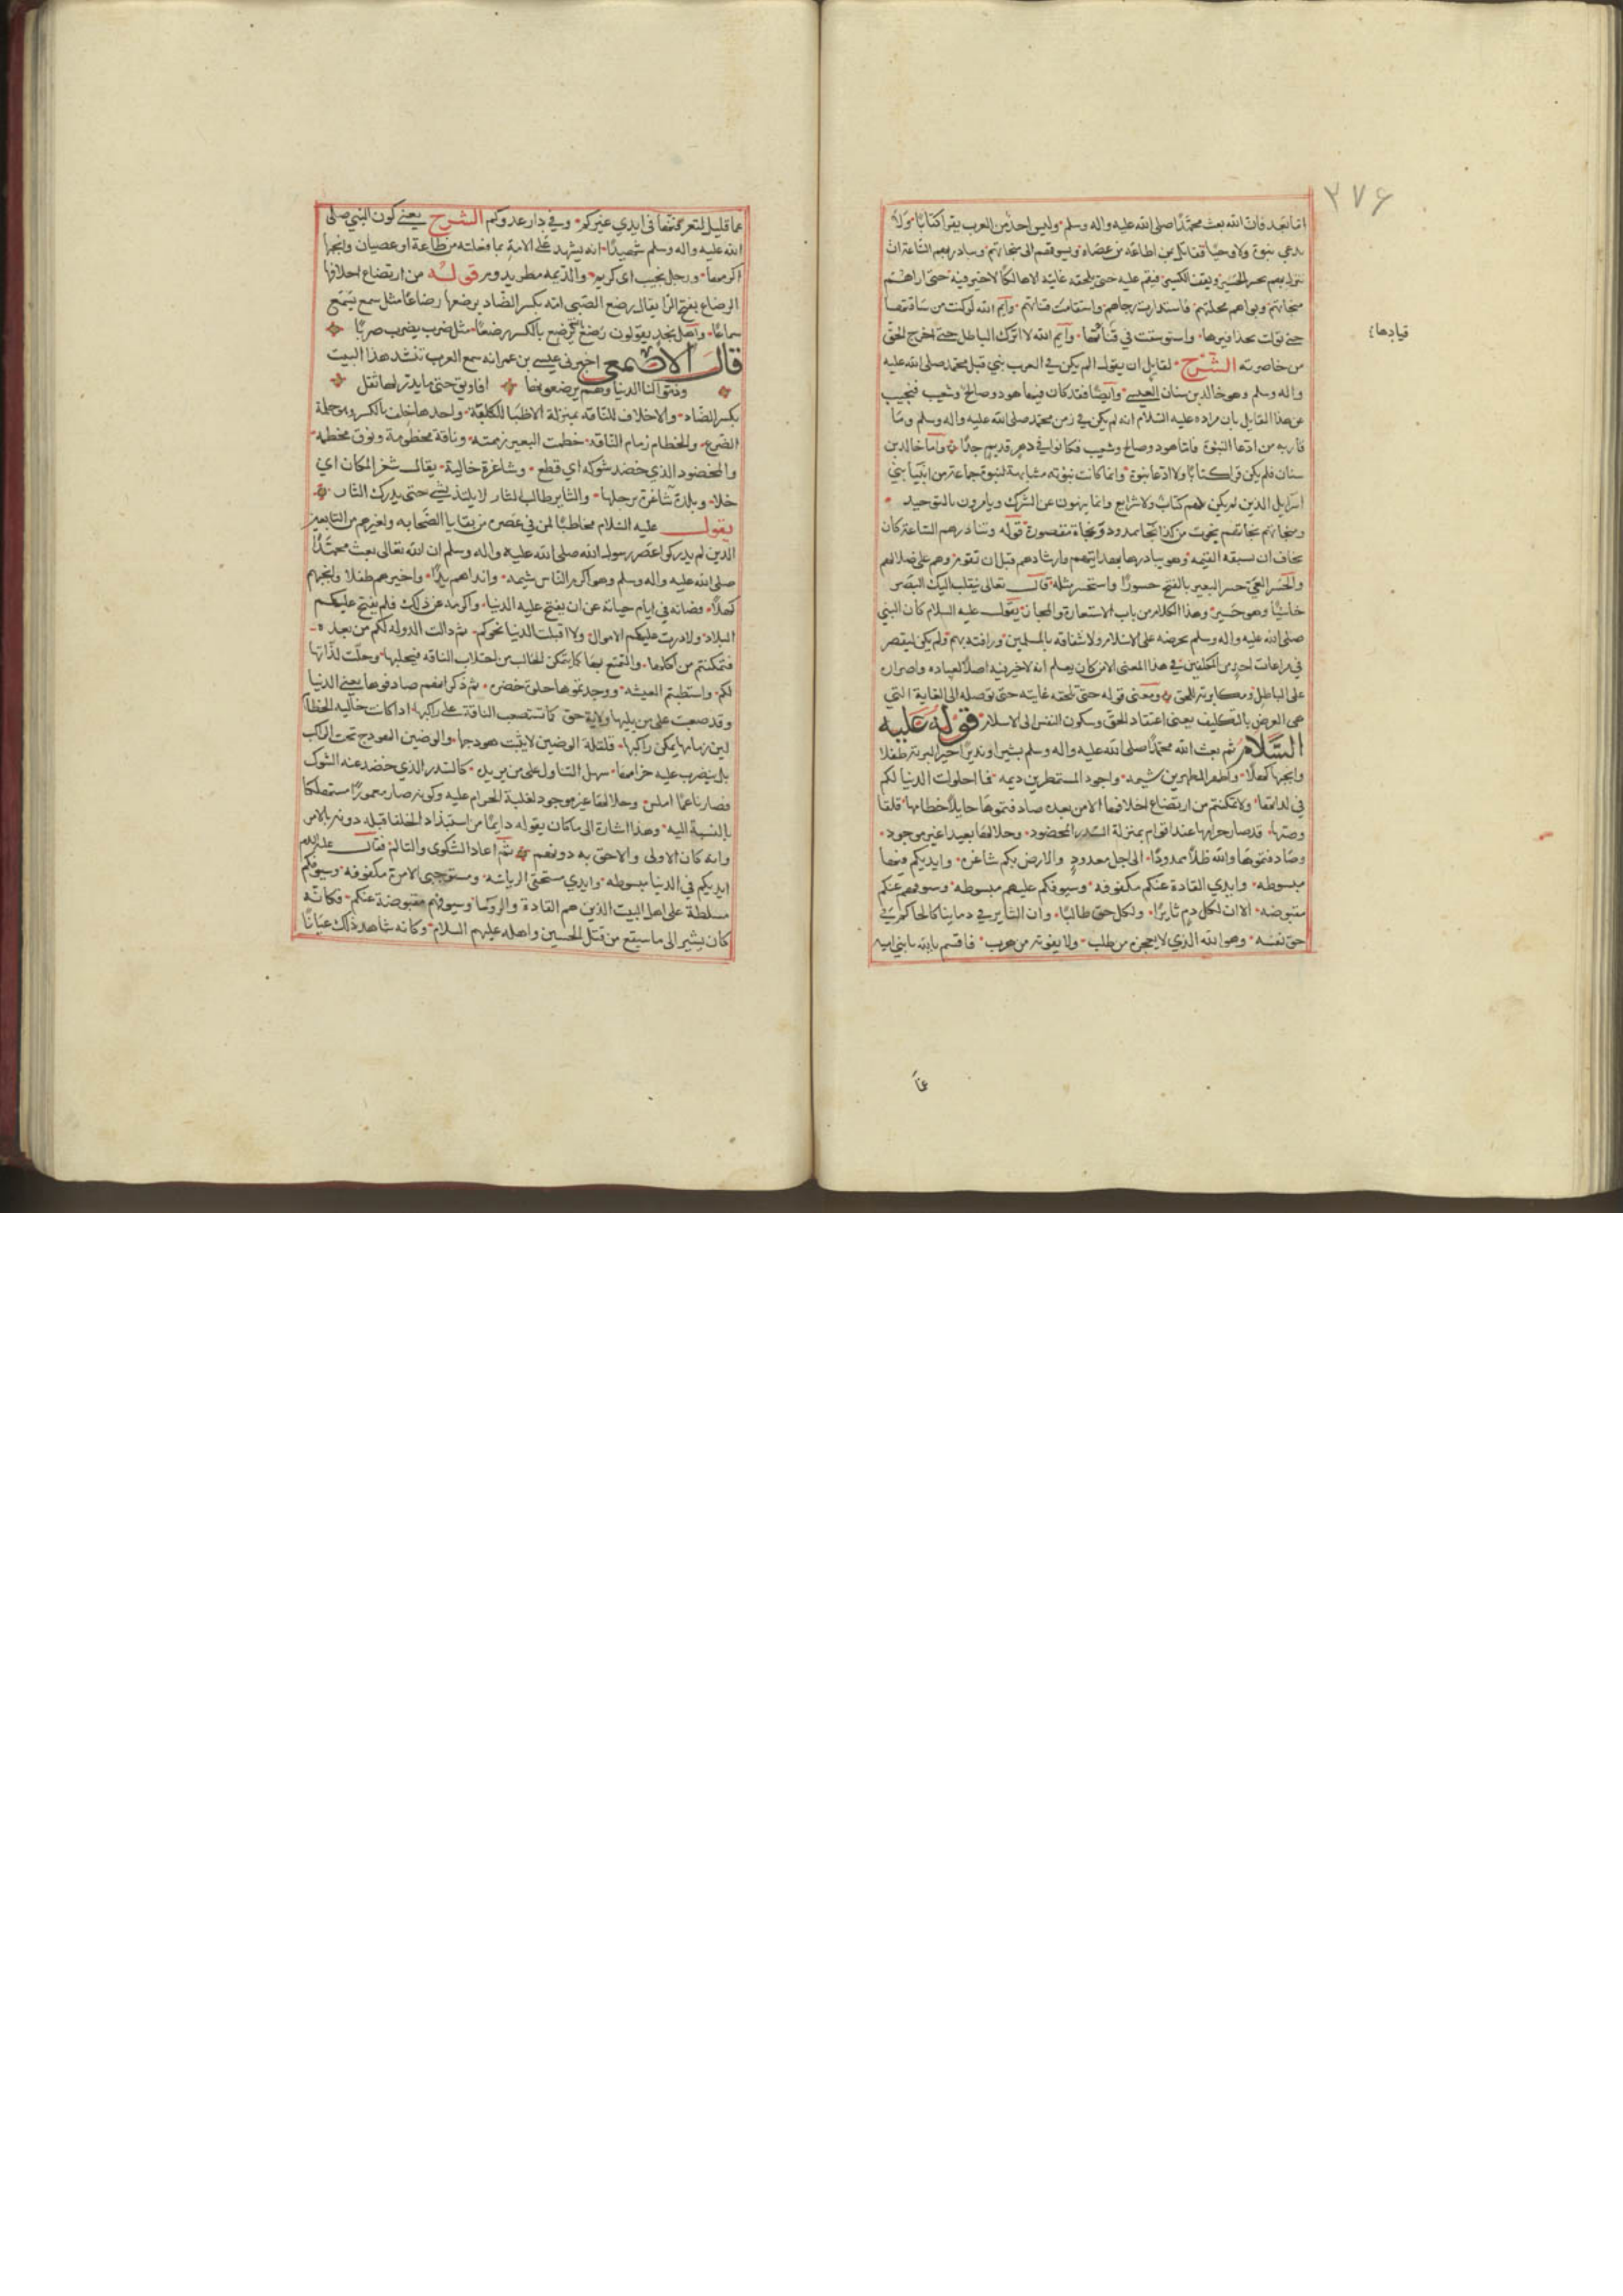 ٣٧۶
اما بعد فان الله بعث محمدا صلى الله عليه واله وسلم وليس احد من العرب يقرا كتابا ولا
يدعي نبوة ولا وحيا فقاتل بمن اطاعه من عصاه ويسوقهم الى منجاتهم ويبادر بهم الساعة ان
تنزل بهم يحسر الحسير ويقف الكسير فيقيم عليه حتى يلحقه غايته الا هالكا لا خير فيه حتى اراهم
منجاتهم وبواهم محلتهم فاستدارت رحاهم واستقامت قناتهم وايم الله لو كنت من ساقتها
حتى تولت بحذافيرها واستوسقت في قيادها وايم الله لا اترك الباطل حتى اخرج الحق
قيادها
من خاصرته الشرح لقايل ان يقول الم يكن في العرب نبي قبل محمد صلى الله عليه
واله وسلم وهو خالد بن سنان العبسي وايضا فقد كان فيها هود وصالح وشعيب فنجيب
عن هذا القايل بان مراده عليه السلام انه لم يكن في زمن محمد صلى الله عليه واله وسلم وما
قاربه من ادعا النبوة فاما هود وصالح وشعيب فكانوا في دهر قديم جدا واما خالد بن
سنان فلم يكن قرا كتابا ولا ادعا نبوة وانما كانت نبوته مشابهة لنبوة جماعة من انبيا بني
اسرايل الذين لم يكن لهم كتاب ولا شرايع وانما ينهون عن الشرك ويامرون بالتوحيد
ومنجاتهم نجاتهم نجوت من كذا نجا ممدود ونجاة مقصورة قوله ويبادر بهم الساعة كان
يخاف ان تسبقه القيمه وهو يبادرها بهدايتهم وارشادهم قبل ان تقوم وهم على ضلالهم
والحسير المعيى حسر البعير بالفتح حسورا واستحسر مثله قال تعالى ينقلب اليك البصر
خاسيا وهو حسير وهذا الكلام من باب الاستعارة والمجاز يقول عليه السلام كان النبي
صلى الله عليه واله وسلم بحرصه على الاسلام ولاشفاقه بالمسلمين ورافته بهم ولم يكن ليقصر
في مراعات احد من المكلفين في هذا المعنى الا من كان يعلم انه لا خير فيه اصلا لعناده واصراره
على الباطل ومكابرته للحق ومعنى قوله حتى تلحقه غايته حتى توصله الى الغاية التي
هي الغرض بالتكليف يعني اعتقاد الحق وسكون النفس الى الاسلام قوله عليه
السلام ثم بعث الله محمدا صلى الله عليه واله وسلم بشيرا ونذيرا خير البرية طفلا
وانجبها كهلا واطهر المطهرين شيمه واجود المستمطرين ديمه فما احلولت الدنيا لكم
في لذاتها ولا تمكنتم من ارتضاع اخلافها الا من بعده صادفتموها جايلا خطامها قلقا
وضينها قد صار حرامها عند اقوام بمنزلة السدر المخضود وحلالها بعيدا غير موجود
وصادفتموها والله ظلا ممدودا الى اجل معدود والارض لكم شاغره وايديكم فيها
مبسوطه وايدي القادة عنكم مكفوفه وسيوفكم عليهم مبسوطه وسيوفهم عنكم
مقبوضه الا ان لكل دم ثايرا ولكل حق طالبا وان الثاير في دماينا كالحاكم في
حق نفسه وهو الله الذي لا يعجزه من طلب ولا يفوته من هرب فاقسم بالله يا بني اميه
عما
عما قليل لتعرفنها في ايدي غيركم وفي دار عدوكم الشرح يعني كون النبي صلى
الله عليه واله وسلم شهيدا انه يشهد على الامة بما فعلته من طاعة او عصيان وانجبها
اكرمها ورجل نجيب اي كريم والديمه مطر يدوم قوله من ارتضاع اخلافها
الرضاع بفتح الرا يقال رضع الصبي امه بكسر الضاد يرضعها رضاعا مثل سمع يسمع
سماعا واهل نجد يقولون رضع يرضع بالكسر رضعا مثل ضرب يضرب ضربا
قال الاصمعي اخبرني عيسى بن عمر انه سمع العرب تنشد هذا البيت
وذموا لنا الدنيا وهم يرضعونها افاويق حتى ما يدر لها ثعل
بكسر الضاد والاخلاف للناقه بمنزلة الاطبا للكلبة واحدها خلف بالكسر وهو حلمة
الضرع والخطام زمام الناقه خطمت البعير زممته وناقة مخطومة ونوق مخطمه
والمخضود الذي خضد شوكه اي قطع وشاغرة خالية يقال شغر المكان اي
خلا وبلدة شاغرة برجلها والثاير طالب الثار لا يلتذ بشي حتى يدرك الثار
يقول عليه السلام مخاطبا لمن في عصره من بقايا الصحابه ولغيرهم من التابعين
الذين لم يدركوا عصر رسول الله صلى الله عليه واله وسلم ان الله تعالى بعث محمدا
صلى الله عليه واله وسلم وهو اكرم الناس شيمه وانداهم يدا واخيرهم طفلا وانجبهم
كهلا فصانه في ايام حياته عن ان يفتح عليه الدنيا واكرمه عن ذلك فلم يفتح عليكم
البلاد ولا درت عليكم الاموال ولا اقبلت الدنيا نحوكم ثم دالت الدولة لكم من بعده
فتمكنتم من اكلها والتمتع بها كما يتمكن الحالب من احتلاب الناقه فيحلبها وحلت لذاتها
لكم واستطبتم المعيشه ووجدتموها حلوة خضره ثم ذكر انهم صادفوها يعني الدنيا
وقد صعبت على من يليها ولاية حق كما تستصعب الناقة على راكبها اذا كانت خاليه الخطام
ليس زمامها يمكن راكبها قلقلة الوضين لا يثبت هودجها والوضين الهودج تحت الراكب
بل يضرب عليه حزامها سهل التناول على من يريده كالسدر الذي خضد عنه الشوك
فصار ناعما املس وحلالها غير موجود لغلبة الحرام عليه وكونه صار مغمورا مستهلكا
بالنسبة اليه وهذا اشارة الى ما كان يقوله دايما من استبداد الخلفا قبله دونه بالامر
وانه كان الاولى والاحق به دونهم ثم اعاد الشكوى والتالم فقال عليه السلام
ايديكم في الدنيا مبسوطه وايدي مستحقي الرياسه ومستوجبي الامرة مكفوفه وسيوفكم
مسلطة على اهل البيت الذين هم القادة والروسا وسيوفهم مقبوضة عنكم فكانه
كان يشير الى ما سيقع من قتل الحسين واهله عليهم السلام وكانه شاهد ذلك عيانا